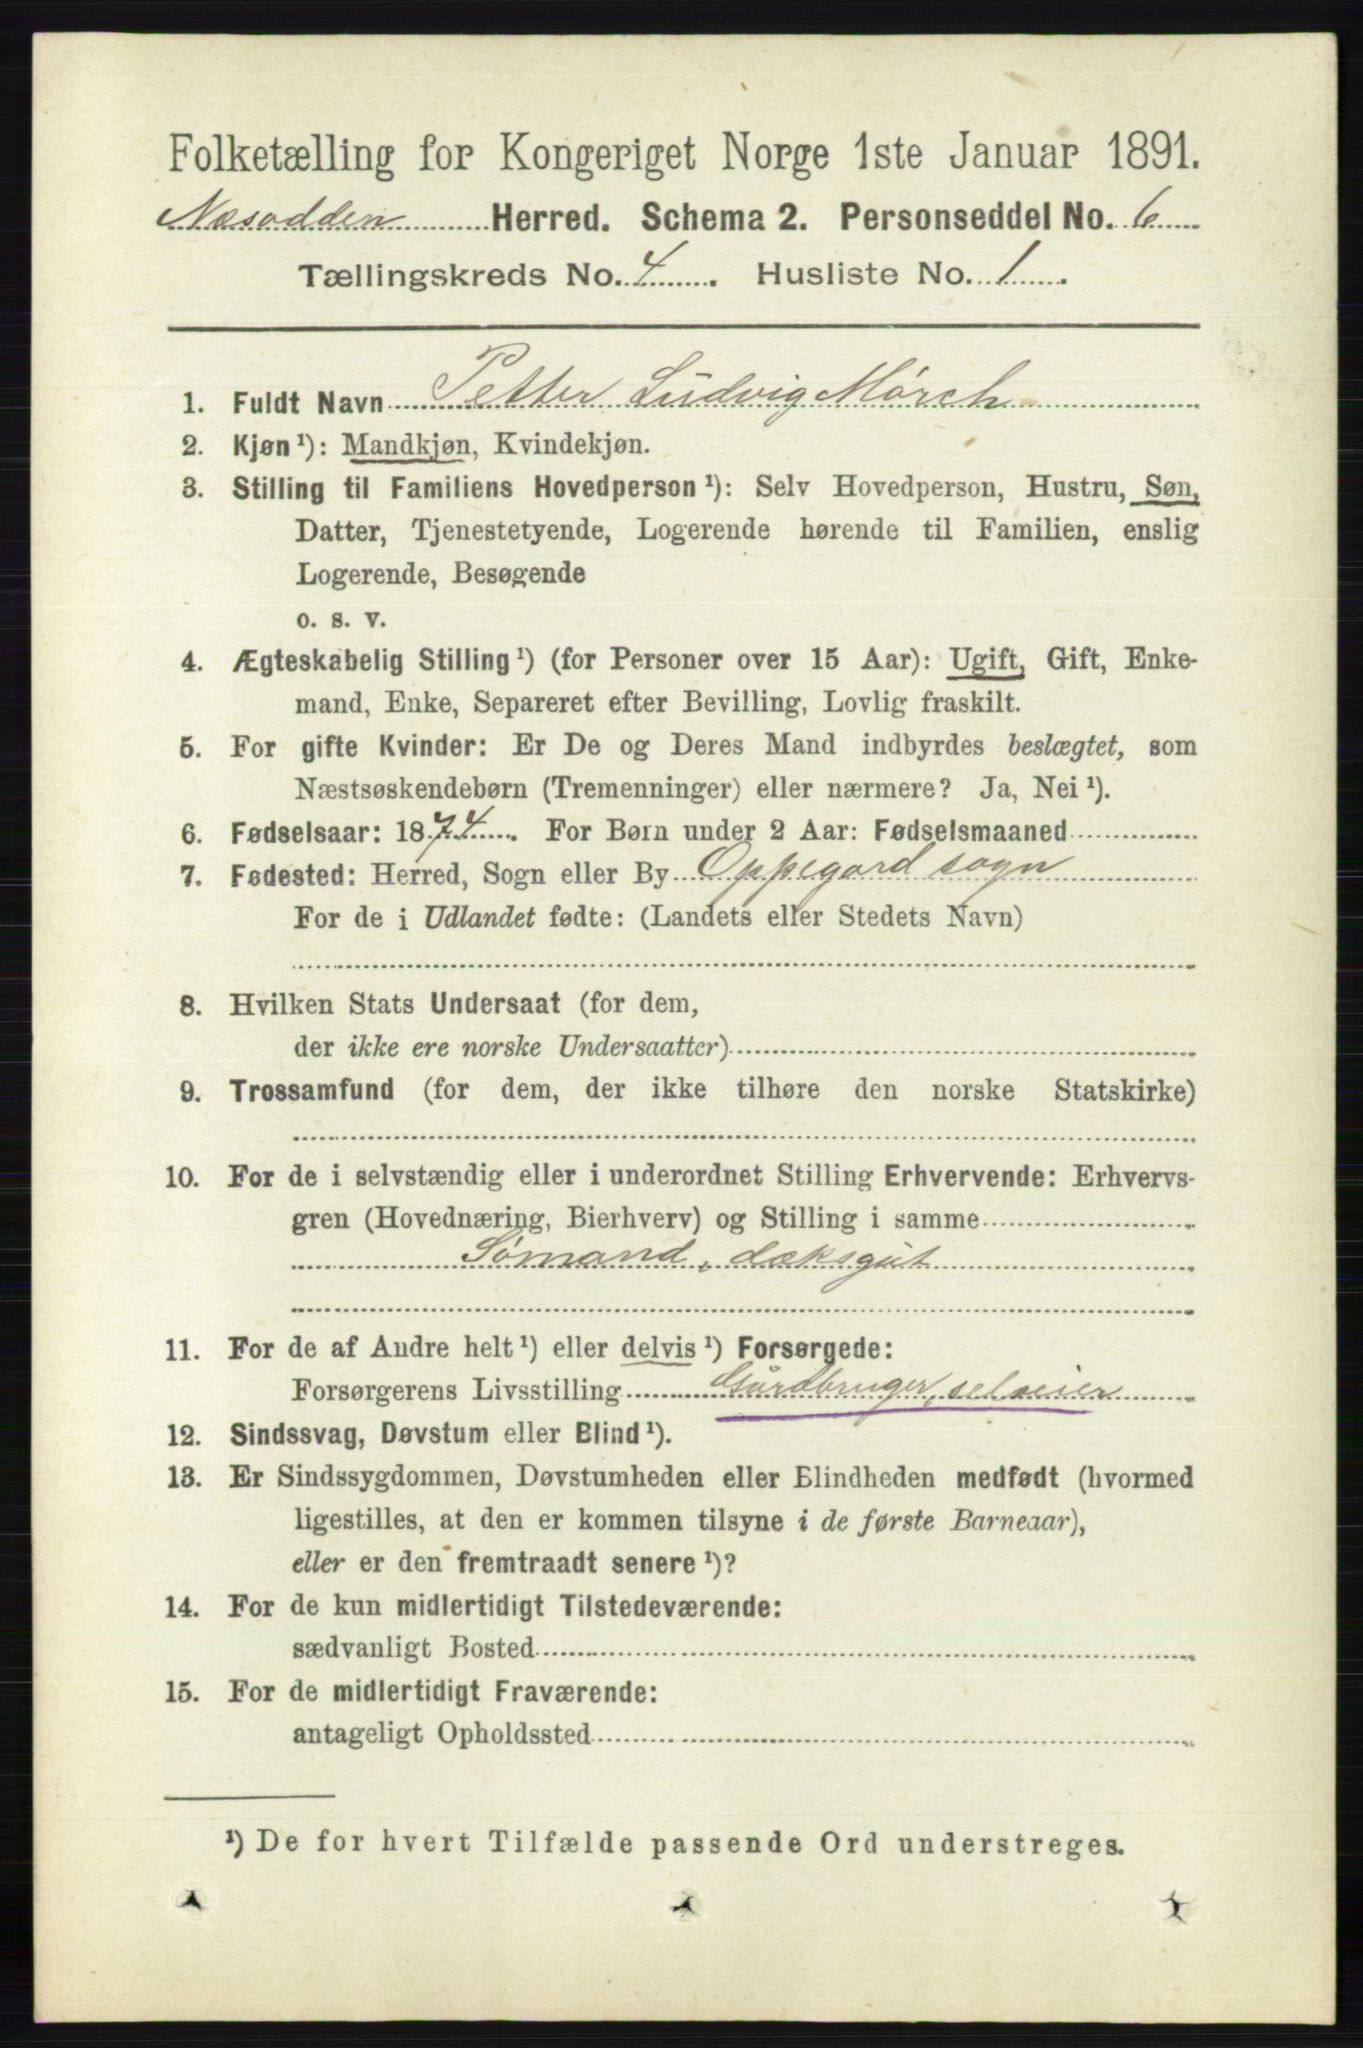 Folketælling for Kongeriget Norge 1ste Januar 1891.
Næsodden Herred. Schema 2. Personseddel No. 6
Tællingskreds No. 4. Husliste No. 1.
1. Fuldt Navn Petter Ludvig Mørch
2. Kjøn ¹): Mandkjøn, Kvindekjøn.
3. Stilling til Familiens Hovedperson ¹): Selv Hovedperson, Hustru, Søn,
Datter, Tjenestetyende, Logerende hørende til Familien, enslig
Logerende, Besøgende
o. s. v.
4. Ægteskabelig Stilling ¹) (for Personer over 15 Aar): Ugift, Gift, Enke-
mand, Enke, Separeret efter Bevilling, Lovlig fraskilt.
5. For gifte Kvinder: Er De og Deres Mand indbyrdes beslægtet, som
Næstsøskendebørn (Tremenninger) eller nærmere? Ja, Nei ¹).
6. Fødselsaar: 1874. For Børn under 2 Aar: Fødselsmaaned
7. Fødested: Herred, Sogn eller By Oppegard sogn
For de i Udlandet fødte: (Landets eller Stedets Navn)
8. Hvilken Stats Undersaat (for dem,
der ikke ere norske Undersaatter)
9. Trossamfund (for dem, der ikke tilhøre den norske Statskirke)
10. For de i selvstændig eller i underordnet Stilling Erhvervende: Erhvervs-
gren (Hovednæring, Bierhverv) og Stilling i samme
Sømand, dæksgut
11. For de af Andre helt ¹) eller delvis ¹) Forsørgede:
Forsørgerens Livsstilling Gårdbruger, selveier
12. Sindssvag, Døvstum eller Blind ¹).
13. Er Sindssygdommen, Døvstumheden eller Blindheden medfødt (hvormed
ligestilles, at den er kommen tilsyne i de første Barneaar),
eller er den fremtraadt senere ¹)?
14. For de kun midlertidigt Tilstedeværende:
sædvanligt Bosted
15. For de midlertidigt Fraværende:
antageligt Opholdssted
¹) De for hvert Tilfælde passende Ord understreges.